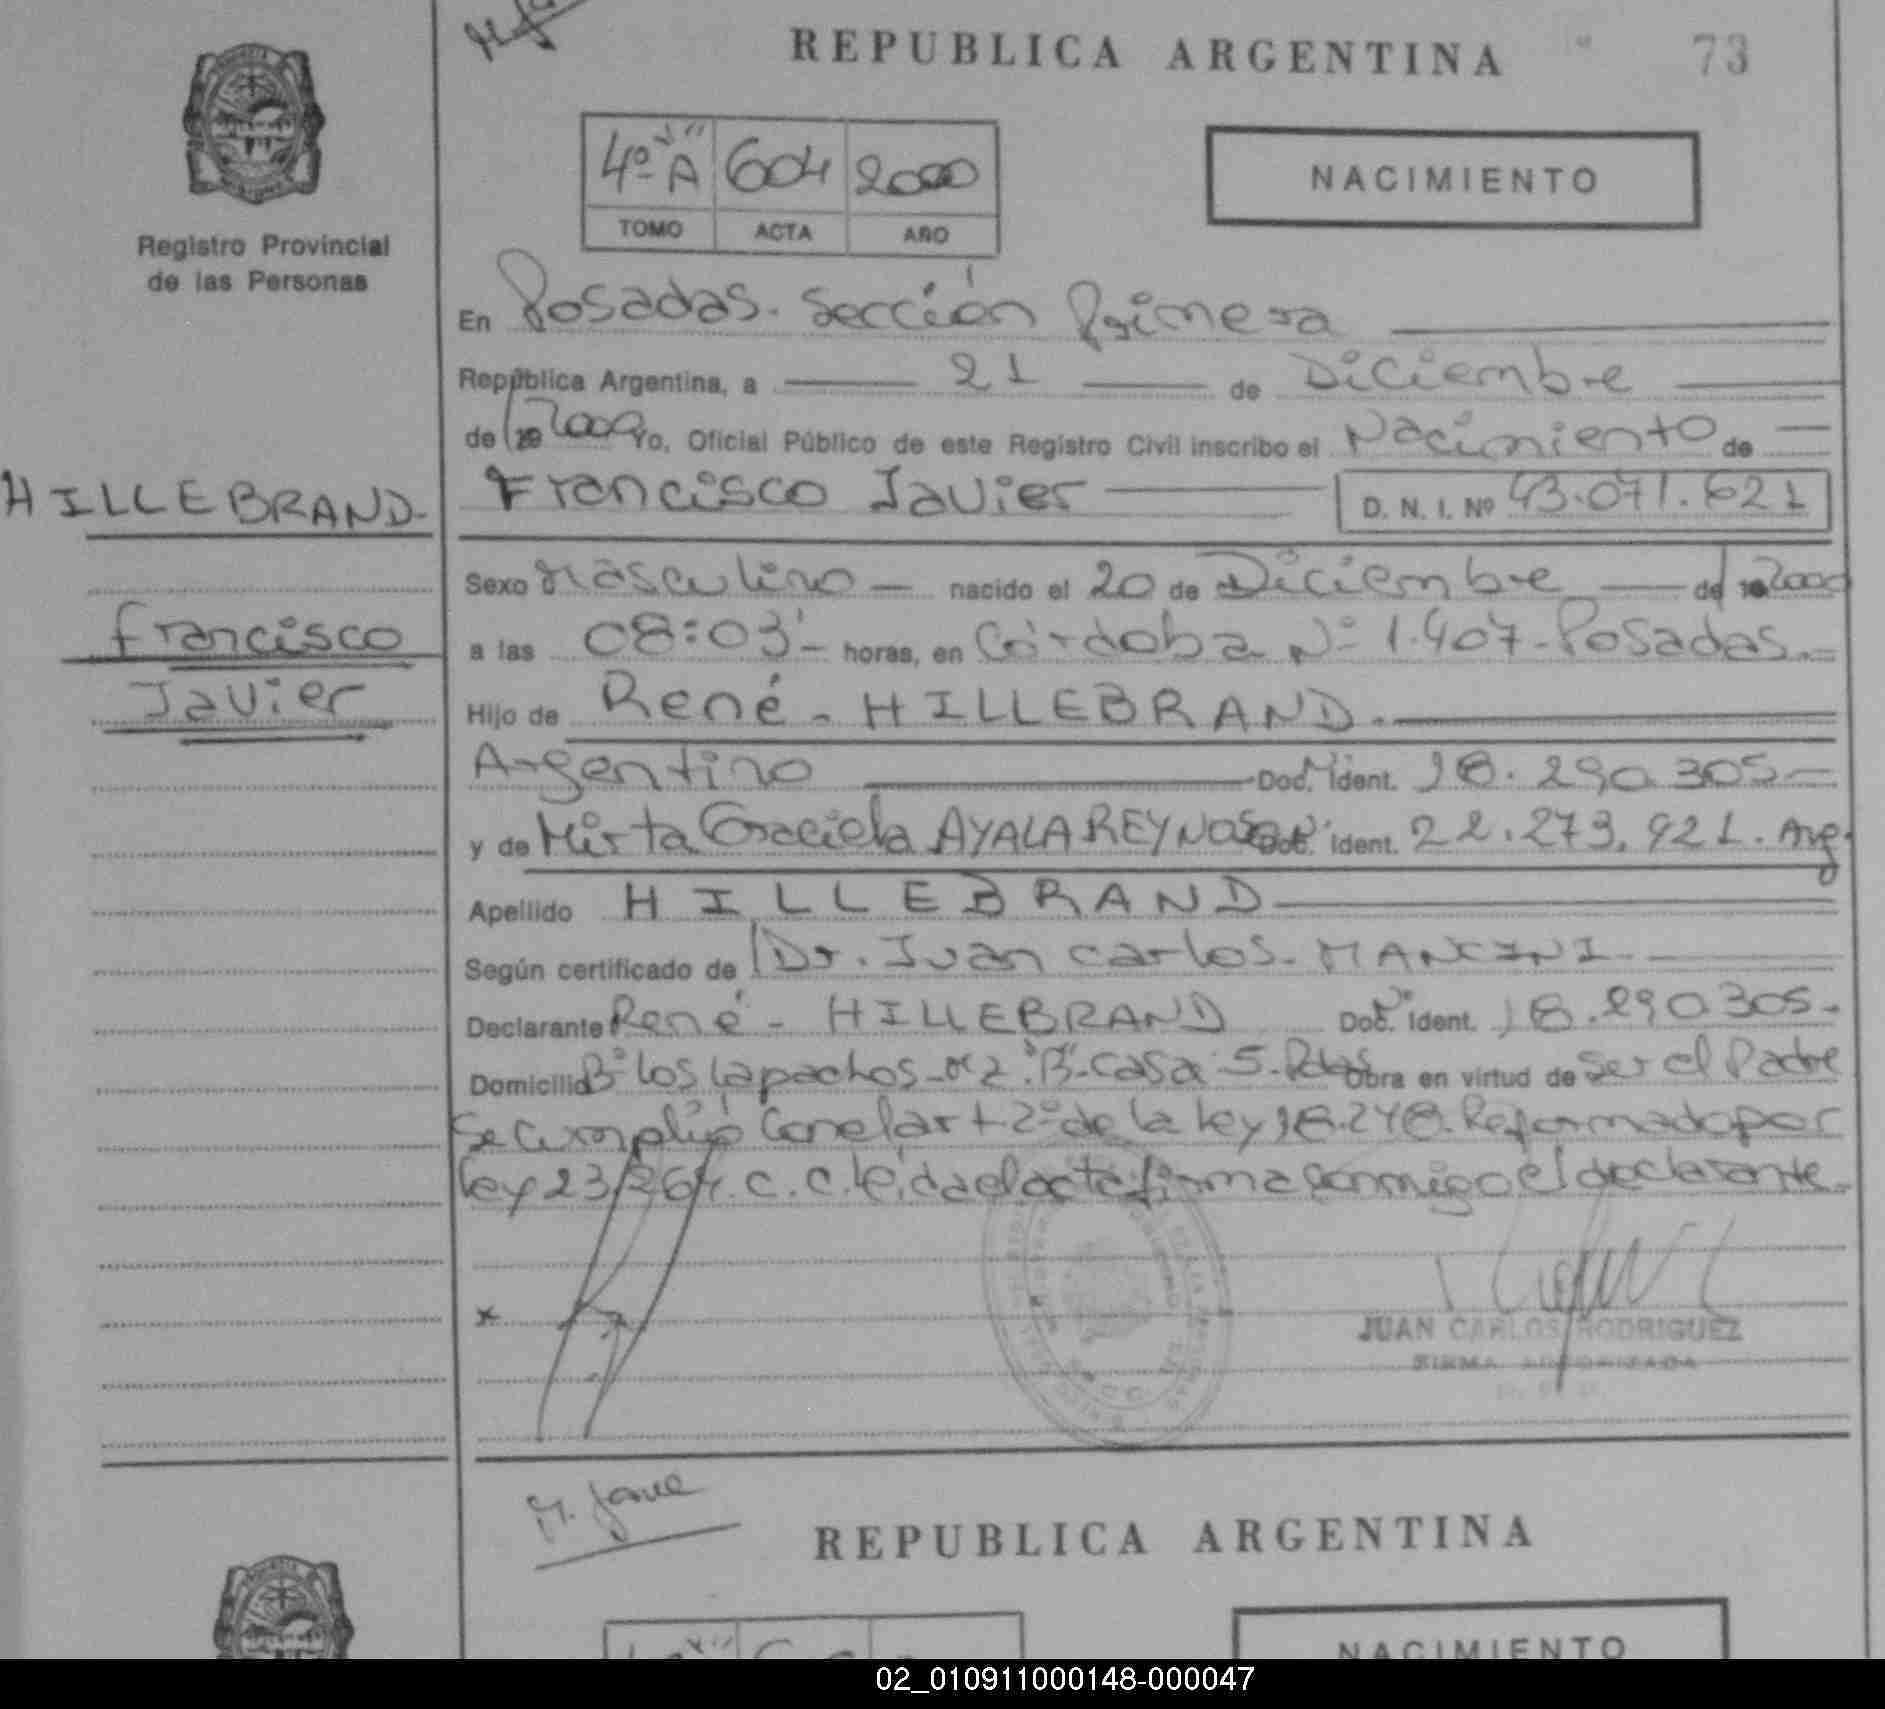 REPUBLICA ARGENTINA
73
4º "A" 604 2000
TOMO ACTA AÑO
NACIMIENTO
Registro Provincial
de las Personas
En Posadas. Sección Primera
República Argentina, a 21 de Diciembre
de 19 2000 Yo, Oficial Público de este Registro Civil inscribo el Nacimiento de
HILLEBRAND-
Francisco Javier
D. N. I. Nº 43.071.621
Sexo Masculino - nacido el 20 de Diciembre de 19 2000
Francisco
Javier
a las 08:03'- horas, en Córdoba Nº 1.407-Posadas.-
Hijo de René - HILLEBRAND.
Argentino Doc. Ident. 18.290.305-
y de Mirta Graciela AYALA REYNOSO Doc. Ident. 22.273.921. Arg.
Apellido HILLEBRAND
Según certificado de Dr. Juan Carlos. MANCINI
Declarante René - HILLEBRAND Doc. Ident. 18.290305-
Domicilio Bº Los Lapachos-Mz "B"-Casa 5-Pdas Obra en virtud de ser el Padre
Se cumplió con el art 2º de la Ley 18.248. Reformado por
Ley 23/264. C. C. Leída el acta firma conmigo el declarante.
JUAN CARLOS RODRIGUEZ
FIRMA AUTORIZADA
REPUBLICA ARGENTINA
NACIMIENTO
02_010911000148-000047